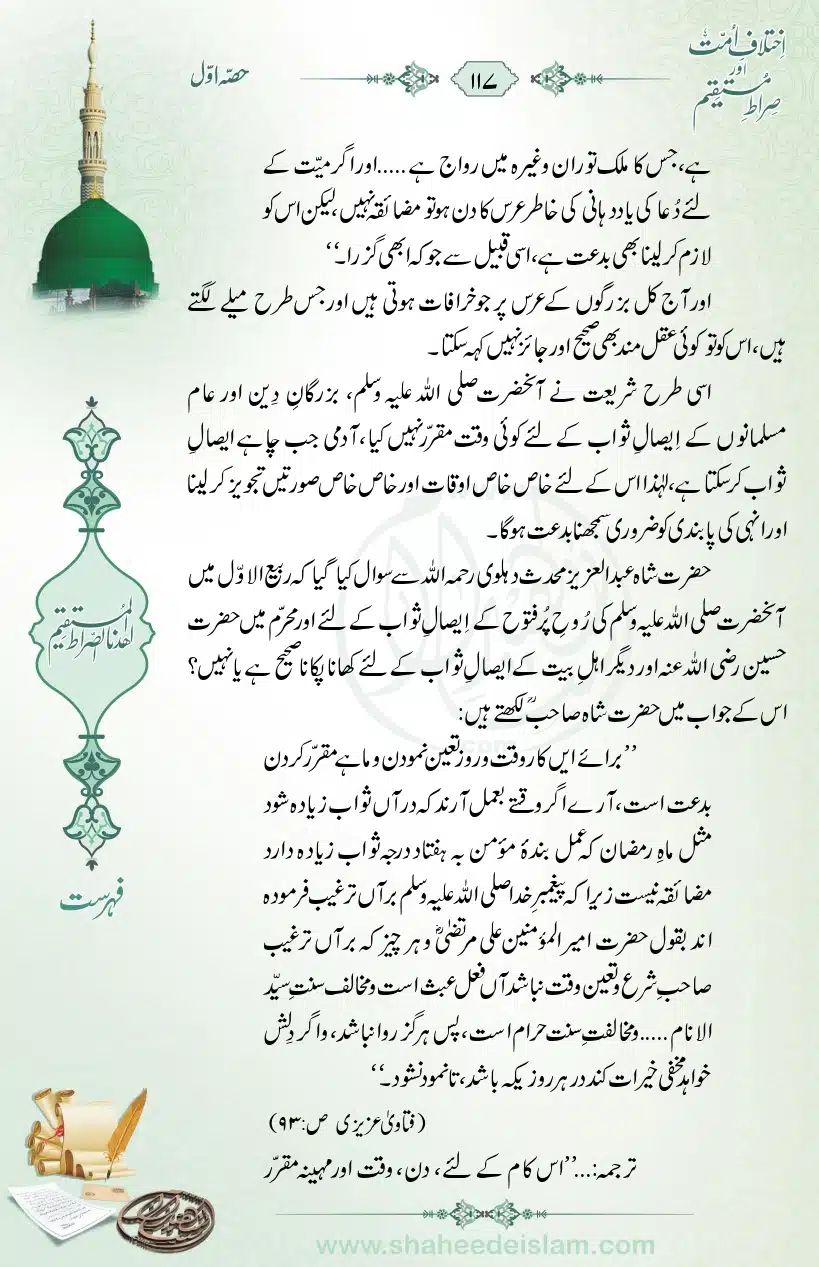 اِختلافِ اُمّت
اور
صِراطِ مُستقیم
۱۱۷
حصّہ اوّل
ہے، جس کا ملک توران وغیرہ میں رواج ہے .....اور اگر میّت کے
لئے دُعا کی یاددہانی کی خاطر عرس کا دن ہو تو مضائقہ نہیں، لیکن اس کو
لازم کرلینا بھی بدعت ہے، اسی قبیل سے جو کہ ابھی گزرا۔‘‘
اور آج کل بزرگوں کے عرس پر جو خرافات ہوتی ہیں اور جس طرح میلے لگتے
ہیں، اس کو تو کوئی عقل مند بھی صحیح اور جائز نہیں کہہ سکتا۔
اسی طرح شریعت نے آنحضرت صلی اللہ علیہ وسلم، بزرگانِ دِین اور عام
مسلمانوں کے اِیصالِ ثواب کے لئے کوئی وقت مقرّر نہیں کیا، آدمی جب چاہے ایصالِ
ثواب کرسکتا ہے، لہٰذا اس کے لئے خاص خاص اوقات اور خاص خاص صورتیں تجویز کرلینا
اور انہی کی پابندی کو ضروری سمجھنا بدعت ہوگا۔
حضرت شاہ عبدالعزیز محدث دہلوی رحمہ اللہ سے سوال کیا گیا کہ ربیع الاوّل میں
آنحضرت صلی اللہ علیہ وسلم کی رُوحِ پُرفتوح کے اِیصالِ ثواب کے لئے اور محرّم میں حضرت
حسین رضی اللہ عنہ اور دیگر اہلِ بیت کے ایصالِ ثواب کے لئے کھانا پکانا صحیح ہے یا نہیں؟
اس کے جواب میں حضرت شاہ صاحبؒ لکھتے ہیں:
’’برائے ایں کار وقت و روز تعین نمودن و ماہے مقرّر کردن
بدعت است، آرے اگر وقتے بعمل آرند کہ درآں ثواب زیادہ شود
مثل ماہِ رمضان کہ عمل بندۂ مؤمن بہ ہفتاد درجہ ثواب زیادہ دارد
مضائقہ نیست زیرا کہ پیغمبرِ خدا صلی اللہ علیہ وسلم برآں ترغیب فرمودہ
اند بقول حضرت امیر المؤمنین علی مرتضٰیؓ و ہر چیز کہ برآں ترغیب
صاحبِ شرع و تعین وقت نباشد آں فعل عبث است و مخالف سنتِ سیّد
الانام ..... و مخالفتِ سنت حرام است، پس ہرگز روا نباشد، و اگر دِلش
خواہد مخفی خیرات کند در ہر روزیکہ باشد، تا نمود نشود۔‘‘
(فتاویٰ عزیزی ص:۹۳)
ترجمہ:...’’اس کام کے لئے، دن، وقت اور مہینہ مقرّر
اھدنا الصّراط المُستقیم
فہرست
www.shaheedeislam.com